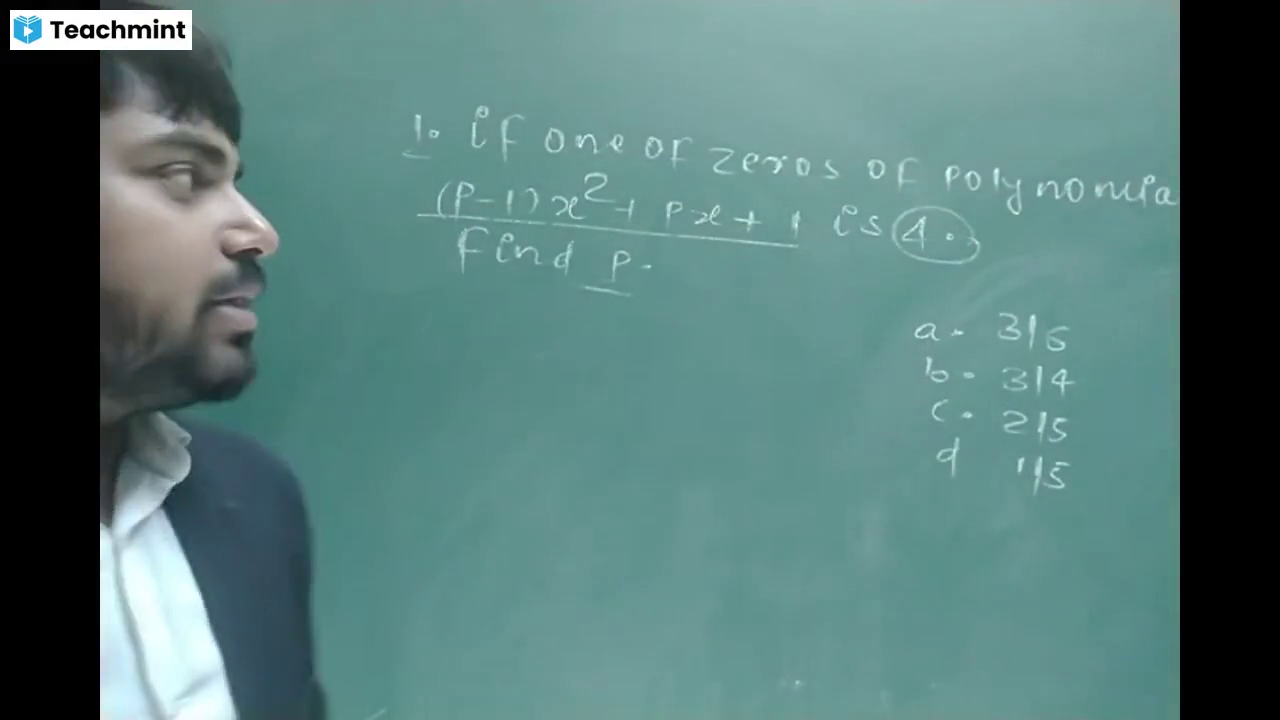 Teachmint
1. if one of zeros of polynomia
(P-1)x²+ Px+1 is 4.
find P.
a. 3/5
b. 3/4
c. 2/5
d 1/5